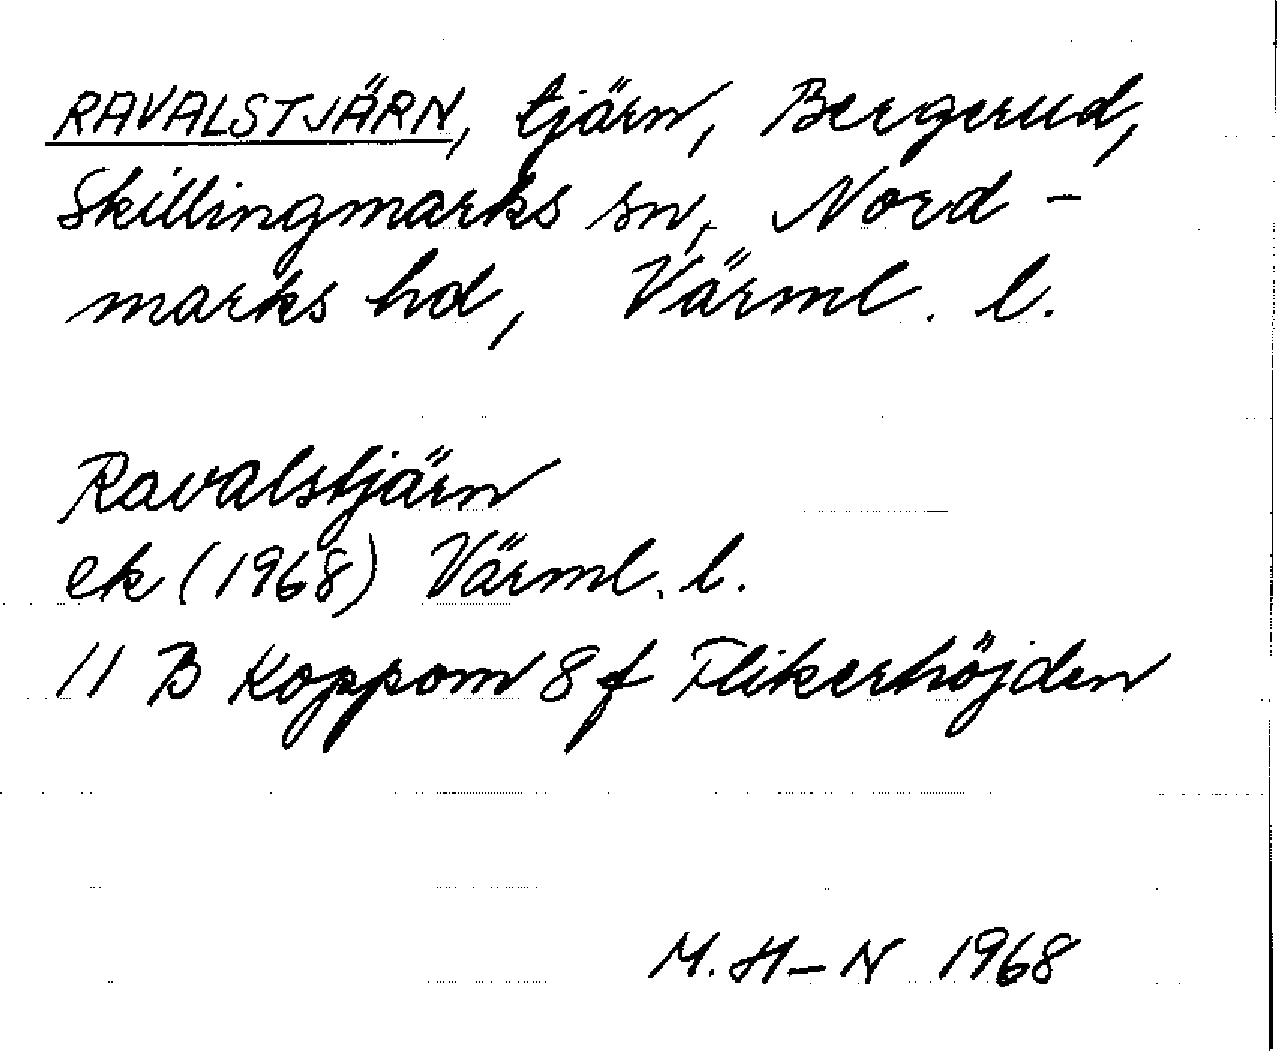 RAVALSTJÄRN, tjärn, Bergerud,
Skillingmarks sn, Nord-
marks hd, Värml. l.
Ravalstjärn
ek (1968) Värml. l.
11 B Koppom 8 f Flikerhöjden
M. H-N 1968